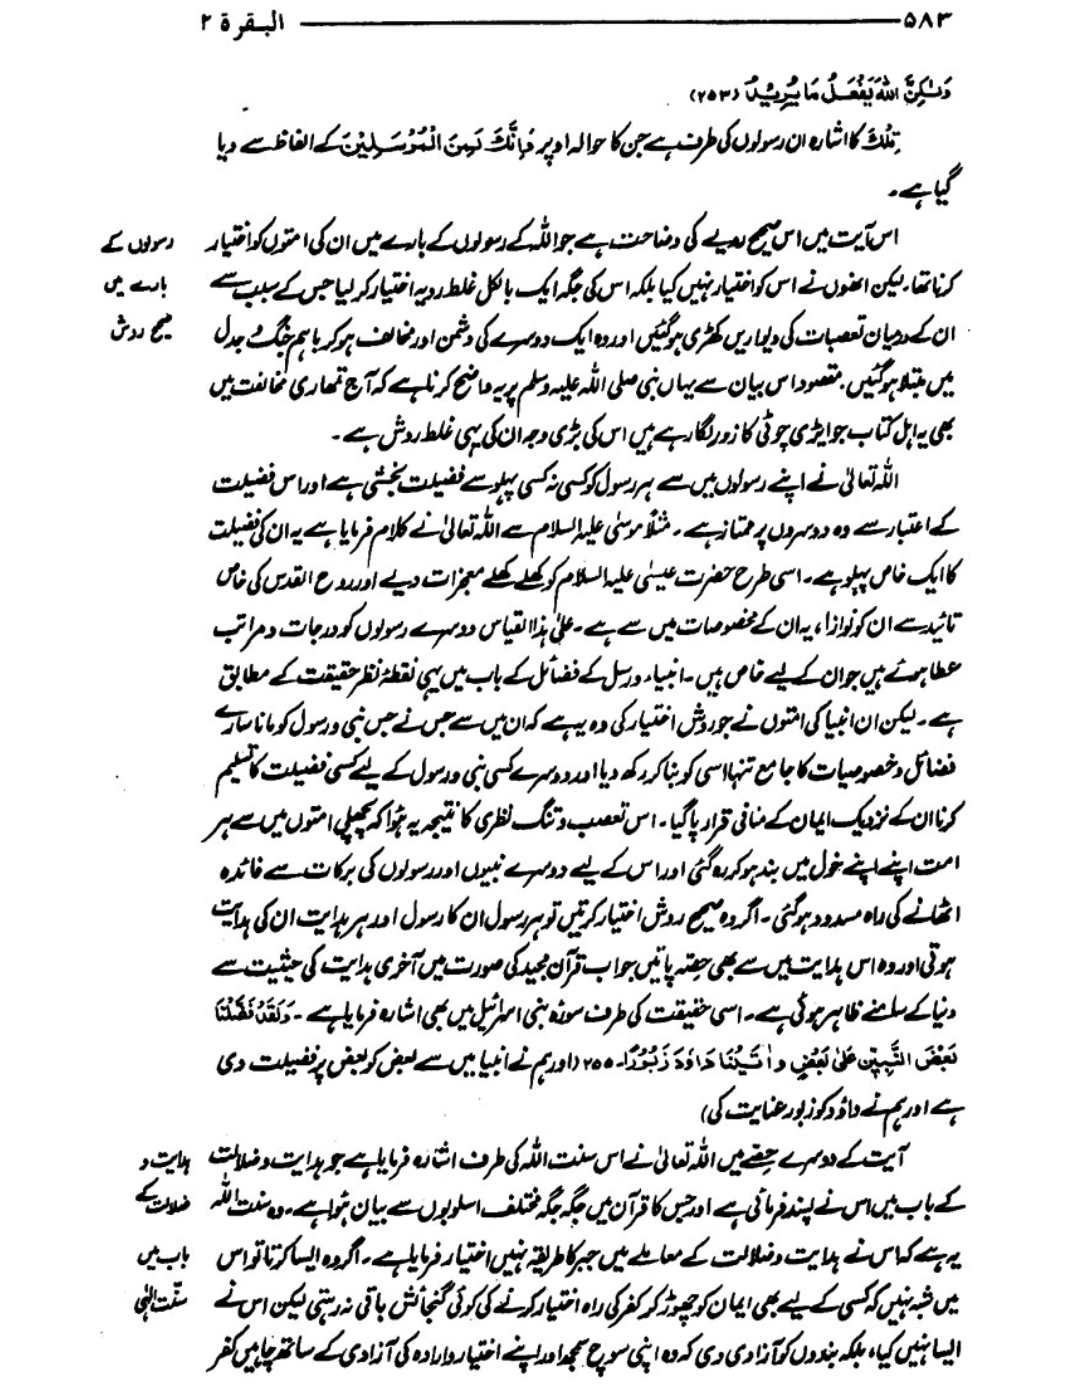 ۵۸۳ البقرة ۲
وَلٰكِنَّ اللّٰهَ يَفْعَلُ مَا يُرِيْدُ (۲۵۳)
تِلْكَ کا اشارہ ان رسولوں کی طرف ہے جن کا حوالہ اوپر فَاِنَّكَ لَمِنَ الْمُرْسَلِيْنَ کے الفاظ سے دیا
گیا ہے۔
اس آیت میں اس صحیح رویے کی وضاحت ہے جو اللہ کے رسولوں کے بارے میں ان کی امتوں کو اختیار
رسولوں کے
کرنا تھا۔ لیکن انھوں نے اس کو اختیار نہیں کیا بلکہ اس کی جگہ ایک بالکل غلط رویہ اختیار کر لیا جس کے سبب سے
بارے میں
ان کے درمیان تعصبات کی دیواریں کھڑی ہوگئیں اور وہ ایک دوسرے کی دشمن اور مخالف ہو کر باہم جنگ و جدل
صحیح روش
میں مبتلا ہو گئیں۔ مقصود اس بیان سے یہاں نبی صلی اللہ علیہ وسلم پر یہ واضح کرنا ہے کہ آج تمھاری مخالفت میں
بھی یہ اہل کتاب جو ایڑی چوٹی کا زور لگا رہے ہیں اس کی بڑی وجہ ان کی یہی غلط روش ہے۔
اللہ تعالیٰ نے اپنے رسولوں میں سے ہر رسول کو کسی نہ کسی پہلو سے فضیلت بخشی ہے اور اس فضیلت
کے اعتبار سے وہ دوسروں پر ممتاز ہے۔ مثلاً موسیٰ علیہ السلام سے اللہ تعالیٰ نے کلام فرمایا ہے یہ ان کی فضیلت
کا ایک خاص پہلو ہے۔ اسی طرح حضرت عیسیٰ علیہ السلام کو کھلے کھلے معجزات دیے اور روح القدس کی خاص
تائید سے ان کو نوازا، یہ ان کے مخصوصات میں سے ہے۔ علیٰ ہذا القیاس دوسرے رسولوں کو درجات و مراتب
عطا ہوئے ہیں جو ان کے لیے خاص ہیں۔ انبیاء و رسل کے فضائل کے باب میں یہی نقطۂ نظر حقیقت کے مطابق
ہے۔ لیکن ان انبیا کی امتوں نے جو روش اختیار کی وہ یہ ہے کہ ان میں سے جس نے جس نبی و رسول کو مانا سارے
فضائل و خصوصیات کا جامع تنہا اسی کو بنا کر رکھ دیا اور دوسرے کسی نبی و رسول کے لیے کسی فضیلت کا تسلیم
کرنا ان کے نزدیک ایمان کے منافی قرار پا گیا۔ اس تعصب و تنگ نظری کا نتیجہ یہ ہوا کہ پچھلی امتوں میں سے ہر
امت اپنے اپنے خول میں بند ہو کر رہ گئی اور اس کے لیے دوسرے نبیوں اور رسولوں کی برکات سے فائدہ
اٹھانے کی راہ مسدود ہو گئی۔ اگر وہ صحیح روش اختیار کرتیں تو ہر رسول ان کا رسول اور ہر ہدایت ان کی ہدایت
ہوتی اور وہ اس ہدایت میں سے بھی حصہ پاتیں جو اب قرآن مجید کی صورت میں آخری ہدایت کی حیثیت سے
دنیا کے سامنے ظاہر ہوئی ہے۔ اسی حقیقت کی طرف سورہ بنی اسرائیل میں بھی اشارہ فرمایا ہے۔ وَلَقَدْ فَضَّلْنَا
بَعْضَ النَّبِيّٖنَ عَلٰى بَعْضٍ وَّاٰتَيْنَا دَاوٗدَ زَبُوْرًا۔ ۵۵۲ (اور ہم نے انبیا میں سے بعض کو بعض پر فضیلت دی
ہے اور ہم نے داؤد کو زبور عنایت کی)
آیت کے دوسرے حصے میں اللہ تعالیٰ نے اس سنت اللہ کی طرف اشارہ فرمایا ہے جو ہدایت و ضلالت
ہدایت و
کے باب میں اس نے پسند فرمائی ہے اور جس کا قرآن میں جگہ جگہ مختلف اسلوبوں سے بیان ہوا ہے۔ وہ سنت اللہ
ضلالت کے
یہ ہے کہ اس نے ہدایت و ضلالت کے معاملے میں جبر کا طریقہ نہیں اختیار فرمایا ہے۔ اگر وہ ایسا کرتا تو اس
باب میں
میں شبہ نہیں کہ کسی کے لیے بھی ایمان کو چھوڑ کر کفر کی راہ اختیار کرنے کی کوئی گنجائش باقی نہ رہتی لیکن اس نے
سنّت الٰہی
ایسا نہیں کیا، بلکہ بندوں کو آزادی دی کہ وہ اپنی سوچ سمجھ اور اپنے اختیار و ارادہ کی آزادی کے ساتھ چاہیں کفر